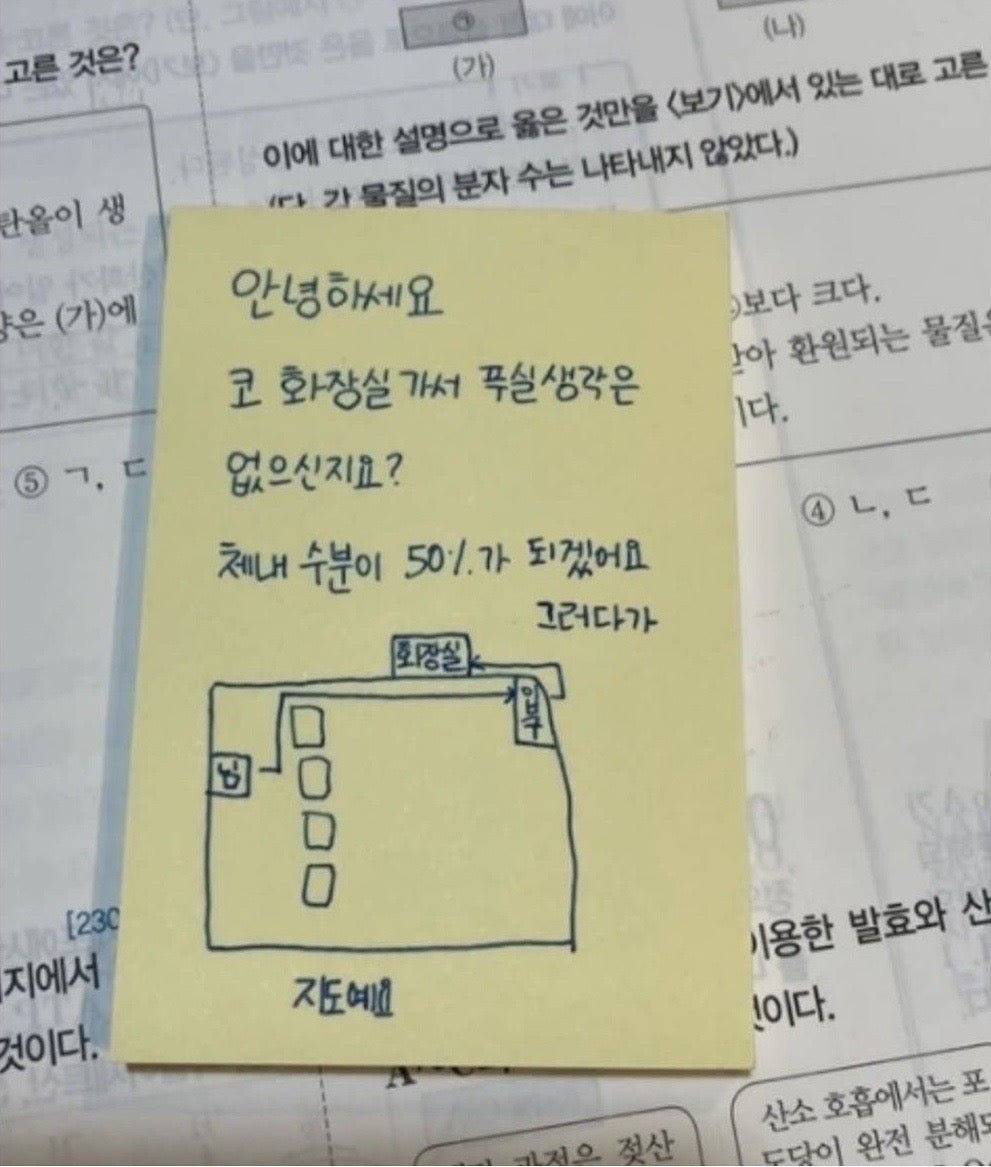 고른 것은?
(가)
(나)
이에 대한 설명으로 옳은 것만을 <보기>에서 있는 대로 고른
(단, 각 물질의 분자 수는 나타내지 않았다.)
탄올이 생
은 (가)에
⑤ ㄱ, ㄷ
안녕하세요
코 화장실 가서 푸실 생각은
없으신지요?
체내 수분이 50%가 되겠어요
그러다가
화장실
입구
님
지도예요
보다 크다.
아 환원되는 물질은
이다.
④ ㄴ, ㄷ
[230
지에서
것이다.
이용한 발효와 산
것이다.
과정은 젖산
산소 호흡에서는 포
도당이 완전 분해되